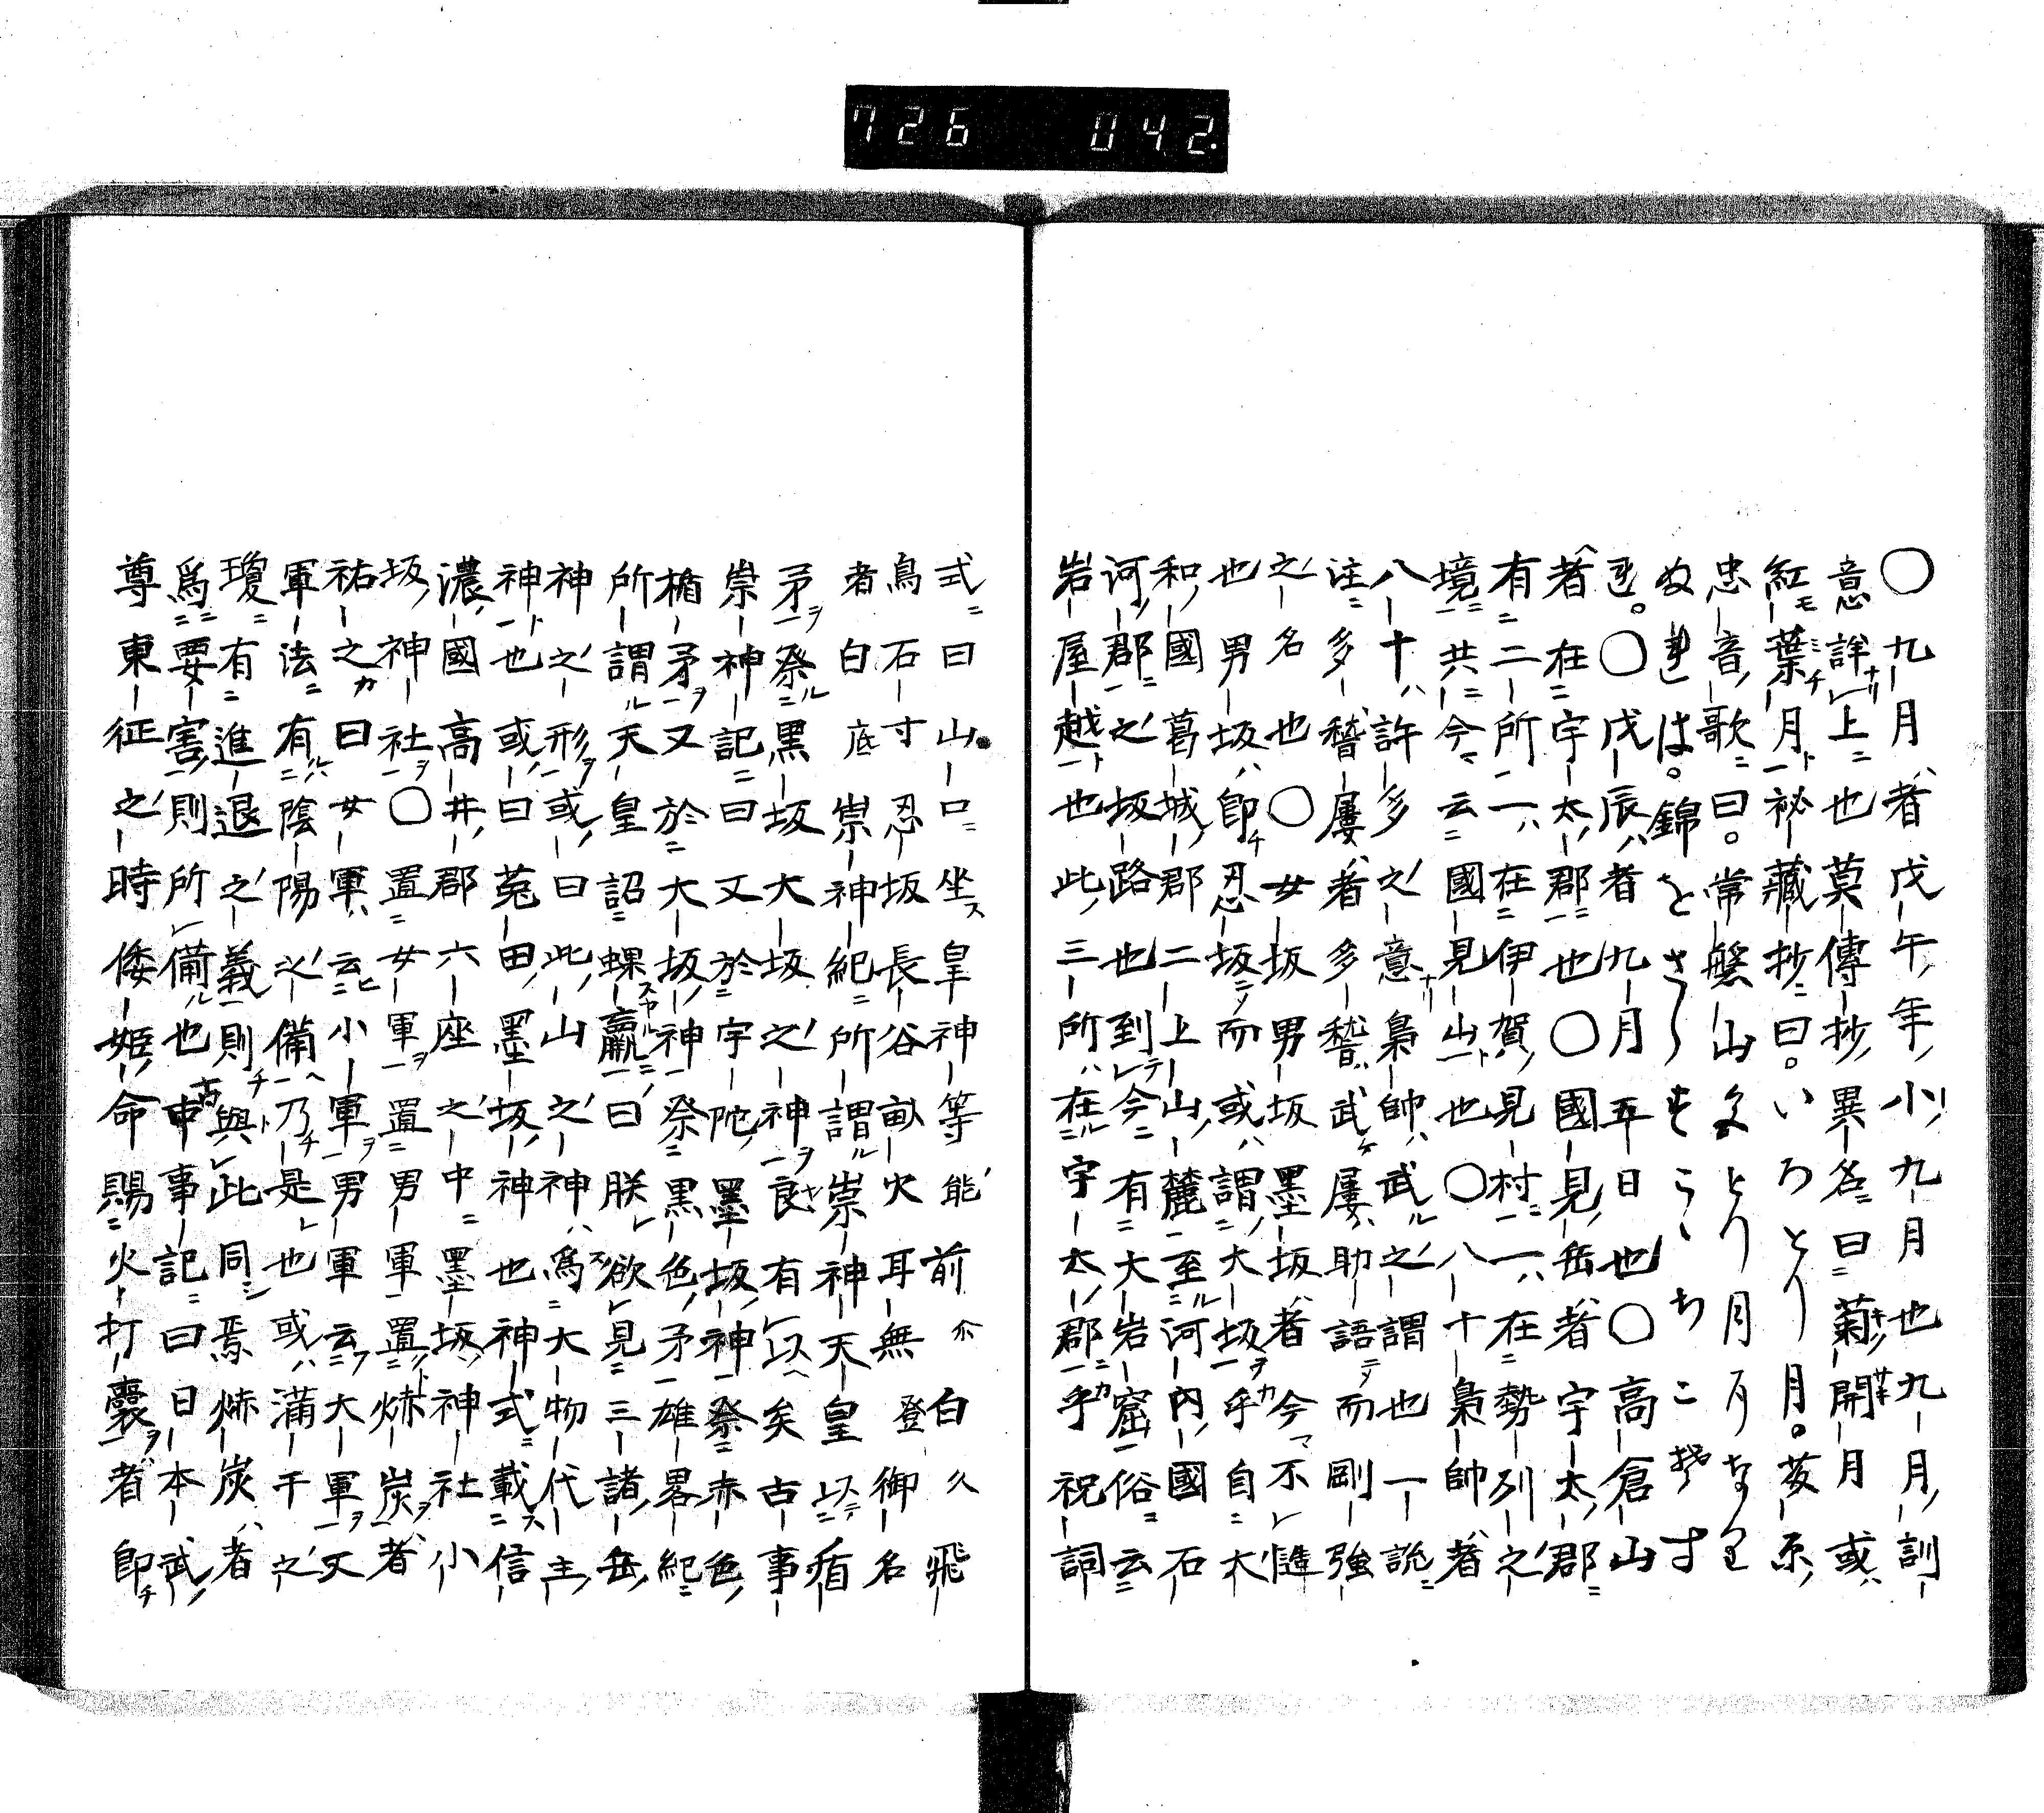 726 042.
〇九月者戊午年小九月也九月訓
意詳上也莫傳抄異名曰菊開月或
紅葉月祕藏抄曰。いろとり月。茇系
忠音歌曰。常盤山
ぬれは。錦をさらすこゝちこそす
れ。〇戊辰者九月五日也〇高倉山
者在宇太郡也〇國見岳者宇太郡
有二所一在伊賀見村一在勢列之
境共今云國見山也〇八十梟帥者
八十許多之意梟帥武之謂也一說
注多稽屢者多稽武屢助語而剛強
之名也〇女坂男坂墨坂者今不慥
也男坂即忍坂而或謂大坂乎自大
和國葛城郡二上山麓至河內國石
河郡之坂路也到今有大岩窟俗云
岩屋越也此三所在宇太郡乎祝詞
式曰山口坐皇神等能前尓白久飛
鳥石寸忍坂長谷畝火耳無登御名
者白底崇神紀所謂崇神天皇以盾
矛祭黒坂大坂之神良有以矣古事
崇神記曰又於宇陀墨坂神祭赤色
楯矛又於大坂神祭黒色矛雄畧紀
所謂天皇詔蜾蠃曰朕欲見三諸岳
神之形或曰此山之神為大物代主
神也或曰菟田墨坂神也神式載信
濃國高井郡六座之中墨坂神社小
坂神社〇置女軍置男軍置焃炭者
祐之曰女軍云小軍男軍云大軍又
軍法有陰陽之備乃是也或満干之
瓊有進退之義則與此同焉焃炭者
為要害則所備也古事記曰日本武
尊東征之時倭姫命賜火打嚢者即